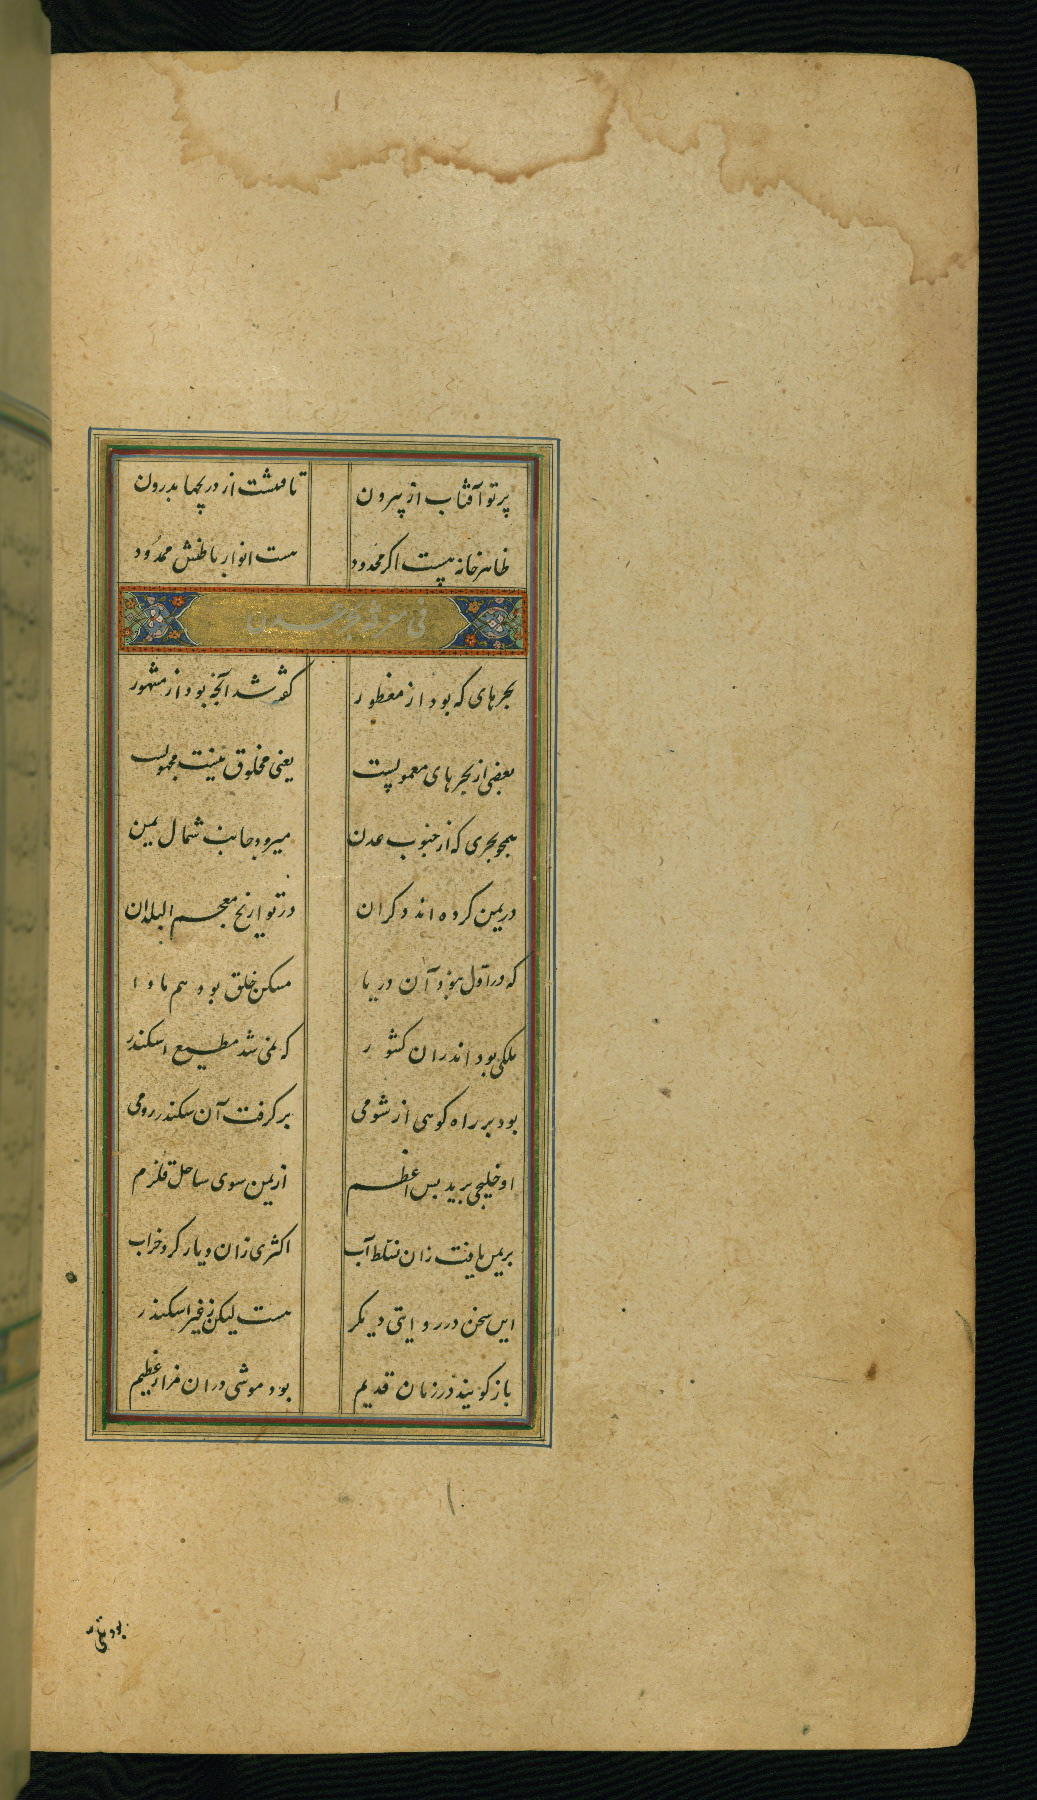 پرتو آفتاب از بیرون تافتست از دریچها بدرون
ظاهر خانه نیست اکر محدود هست انوار باطنش محدود
فی معرفة بحر
بحرهای که بود از مفطور کفته شد آنچه بود از مشهور
بعضی از بحرهای معمولیست یعنی مخلوق نیست مجهولیست
همچو بحری که از جنوب عدن میرود جانب شمال یمن
در یمن کرده اند ذکر آن در تواریخ معجم البلدان
که در اول نبود آن دریا مسکن خلق بود هم ماوا
ملکی بود اندران کشور که نمی شد مطیع اسکندر
بود بر راه کوهی از شومی برکرفت آن سکندر رومی
او خلیجی برید بس اعظم از یمن سوی ساحل قلزم
بر یمن یافت زان تسلط آب اکثری زان دیار کرد خراب
این سخن در روایتی دیکر هست لیکن ز غیر اسکندر
باز کویند در زمان قدیم بود موشی دران مزار عظیم
بود